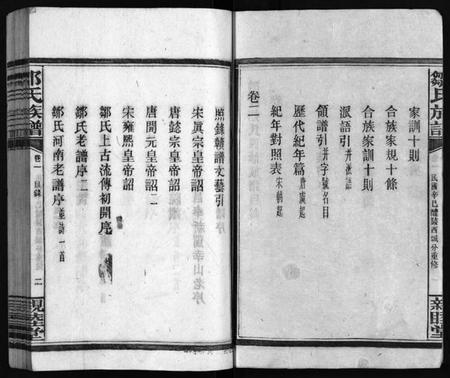 鄒氏族譜
民國辛巳醴陵西城分重修
親睦堂
家訓十則
合族家規十條
合族家訓十則
派語引并派語
領譜引并字號名目
歷代紀年篇
紀年對照表
卷二
照錄轉譜文藝引
宋眞宗皇帝詔
唐懿宗皇帝詔
唐開元皇帝詔二
宋雍熙皇帝詔
鄒氏上古流傳初開序
鄒氏老譜序二
鄒氏河南老譜序
鄒氏族譜
卷一
目錄
二
親睦堂